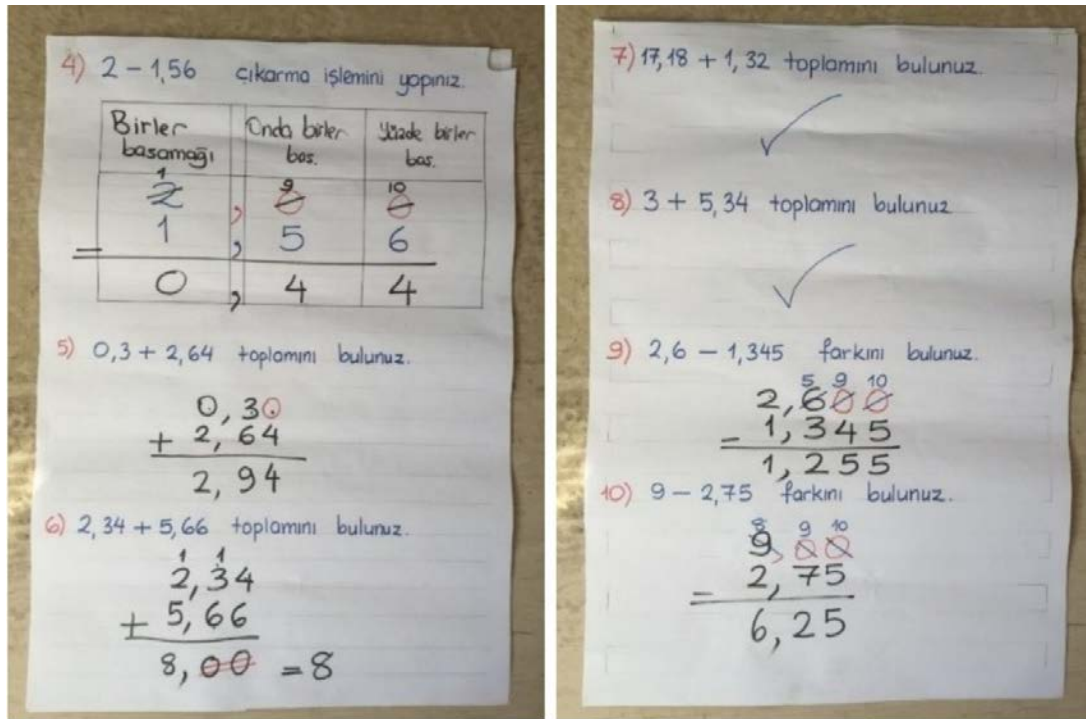 4) 2 - 1,56 çıkarma işlemini yapınız.
Birler basamağı Onda birler bas. Yüzde birler bas.
1 9 10
2 , 0 0
- 1 , 5 6
0 , 4 4
5) 0,3 + 2,64 toplamını bulunuz.
0,30
+ 2,64
2,94
6) 2,34 + 5,66 toplamını bulunuz.
1 1
2,34
+ 5,66
8,00 = 8
7) 17,18 + 1,32 toplamını bulunuz.
8) 3 + 5,34 toplamını bulunuz
9) 2,6 - 1,345 farkını bulunuz.
5 9 10
2,600
- 1,345
1,255
10) 9 - 2,75 farkını bulunuz.
8 9 10
9,00
- 2,75
6,25